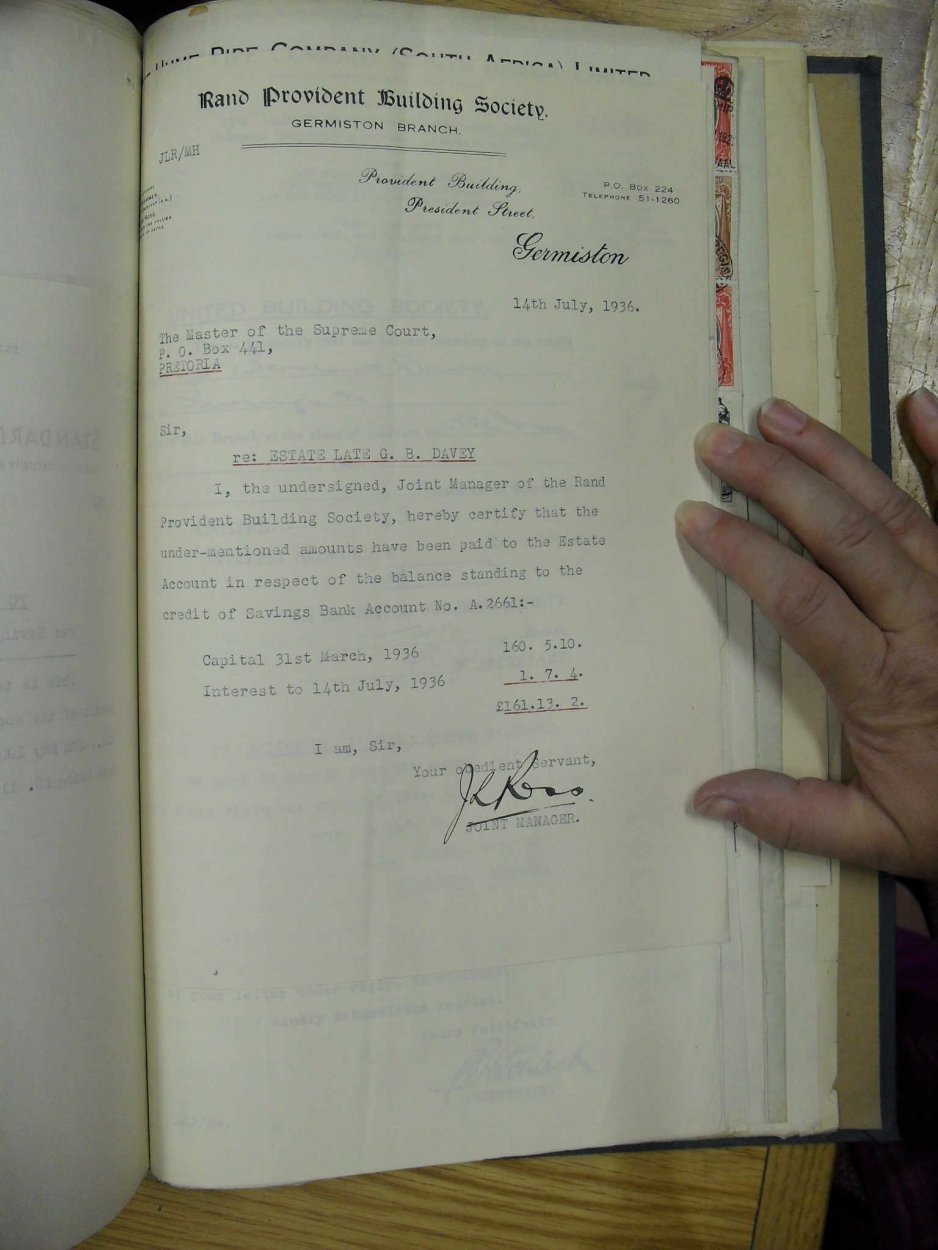 HUME PIPE COMPANY (SOUTH AFRICA) LIMITED
Rand Provident Building Society.
GERMISTON BRANCH.
JLR/MH
Provident Building,
President Street,
P.O. Box 224
TELEPHONE 51-1260
Germiston
14th July, 1936.
UNITED BUILDING SOCIETY
The Master of the Supreme Court,
P. O. Box 441,
PRETORIA
Sir,
re: ESTATE LATE G. B. DAVEY
I, the undersigned, Joint Manager of the Rand
Provident Building Society, hereby certify that the
under-mentioned amounts have been paid to the Estate
Account in respect of the balance standing to the
credit of Savings Bank Account No. A.2661:-
Capital 31st March, 1936 160. 5.10.
Interest to 14th July, 1936 1. 7. 4.
£161.13. 2.
I am, Sir,
Your obedient Servant,
JLRoss.
JOINT MANAGER.
your letter under reply, is
Kindly acknowledge receipt.
Yours faithfully,
STANDARD